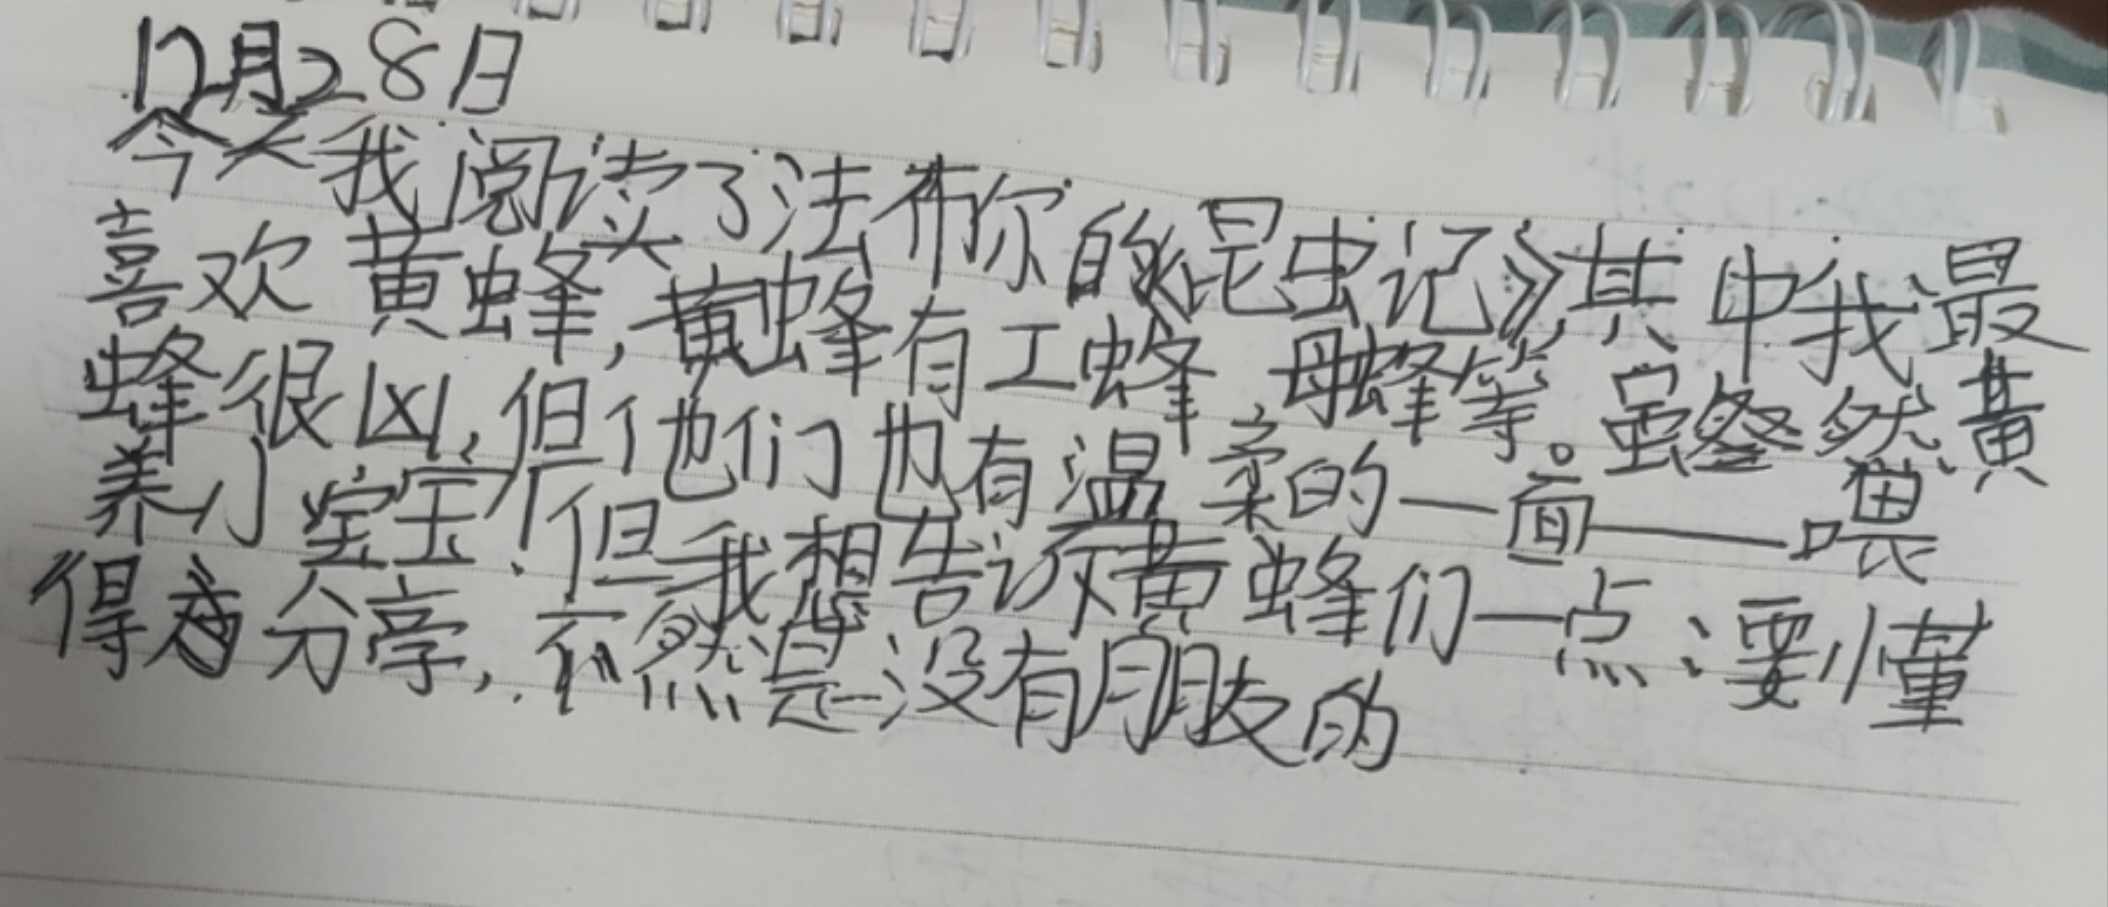 12月28日
今天我阅读了法布你的《昆虫记》,其中我最
喜欢黄蜂,黄蜂有工蜂、母蜂等。虽然黄
蜂很凶,但他们也有温柔的一面——喂
养小宝宝.但我想告诉黄蜂们一点:要懂
得分享,不然是没有朋友的